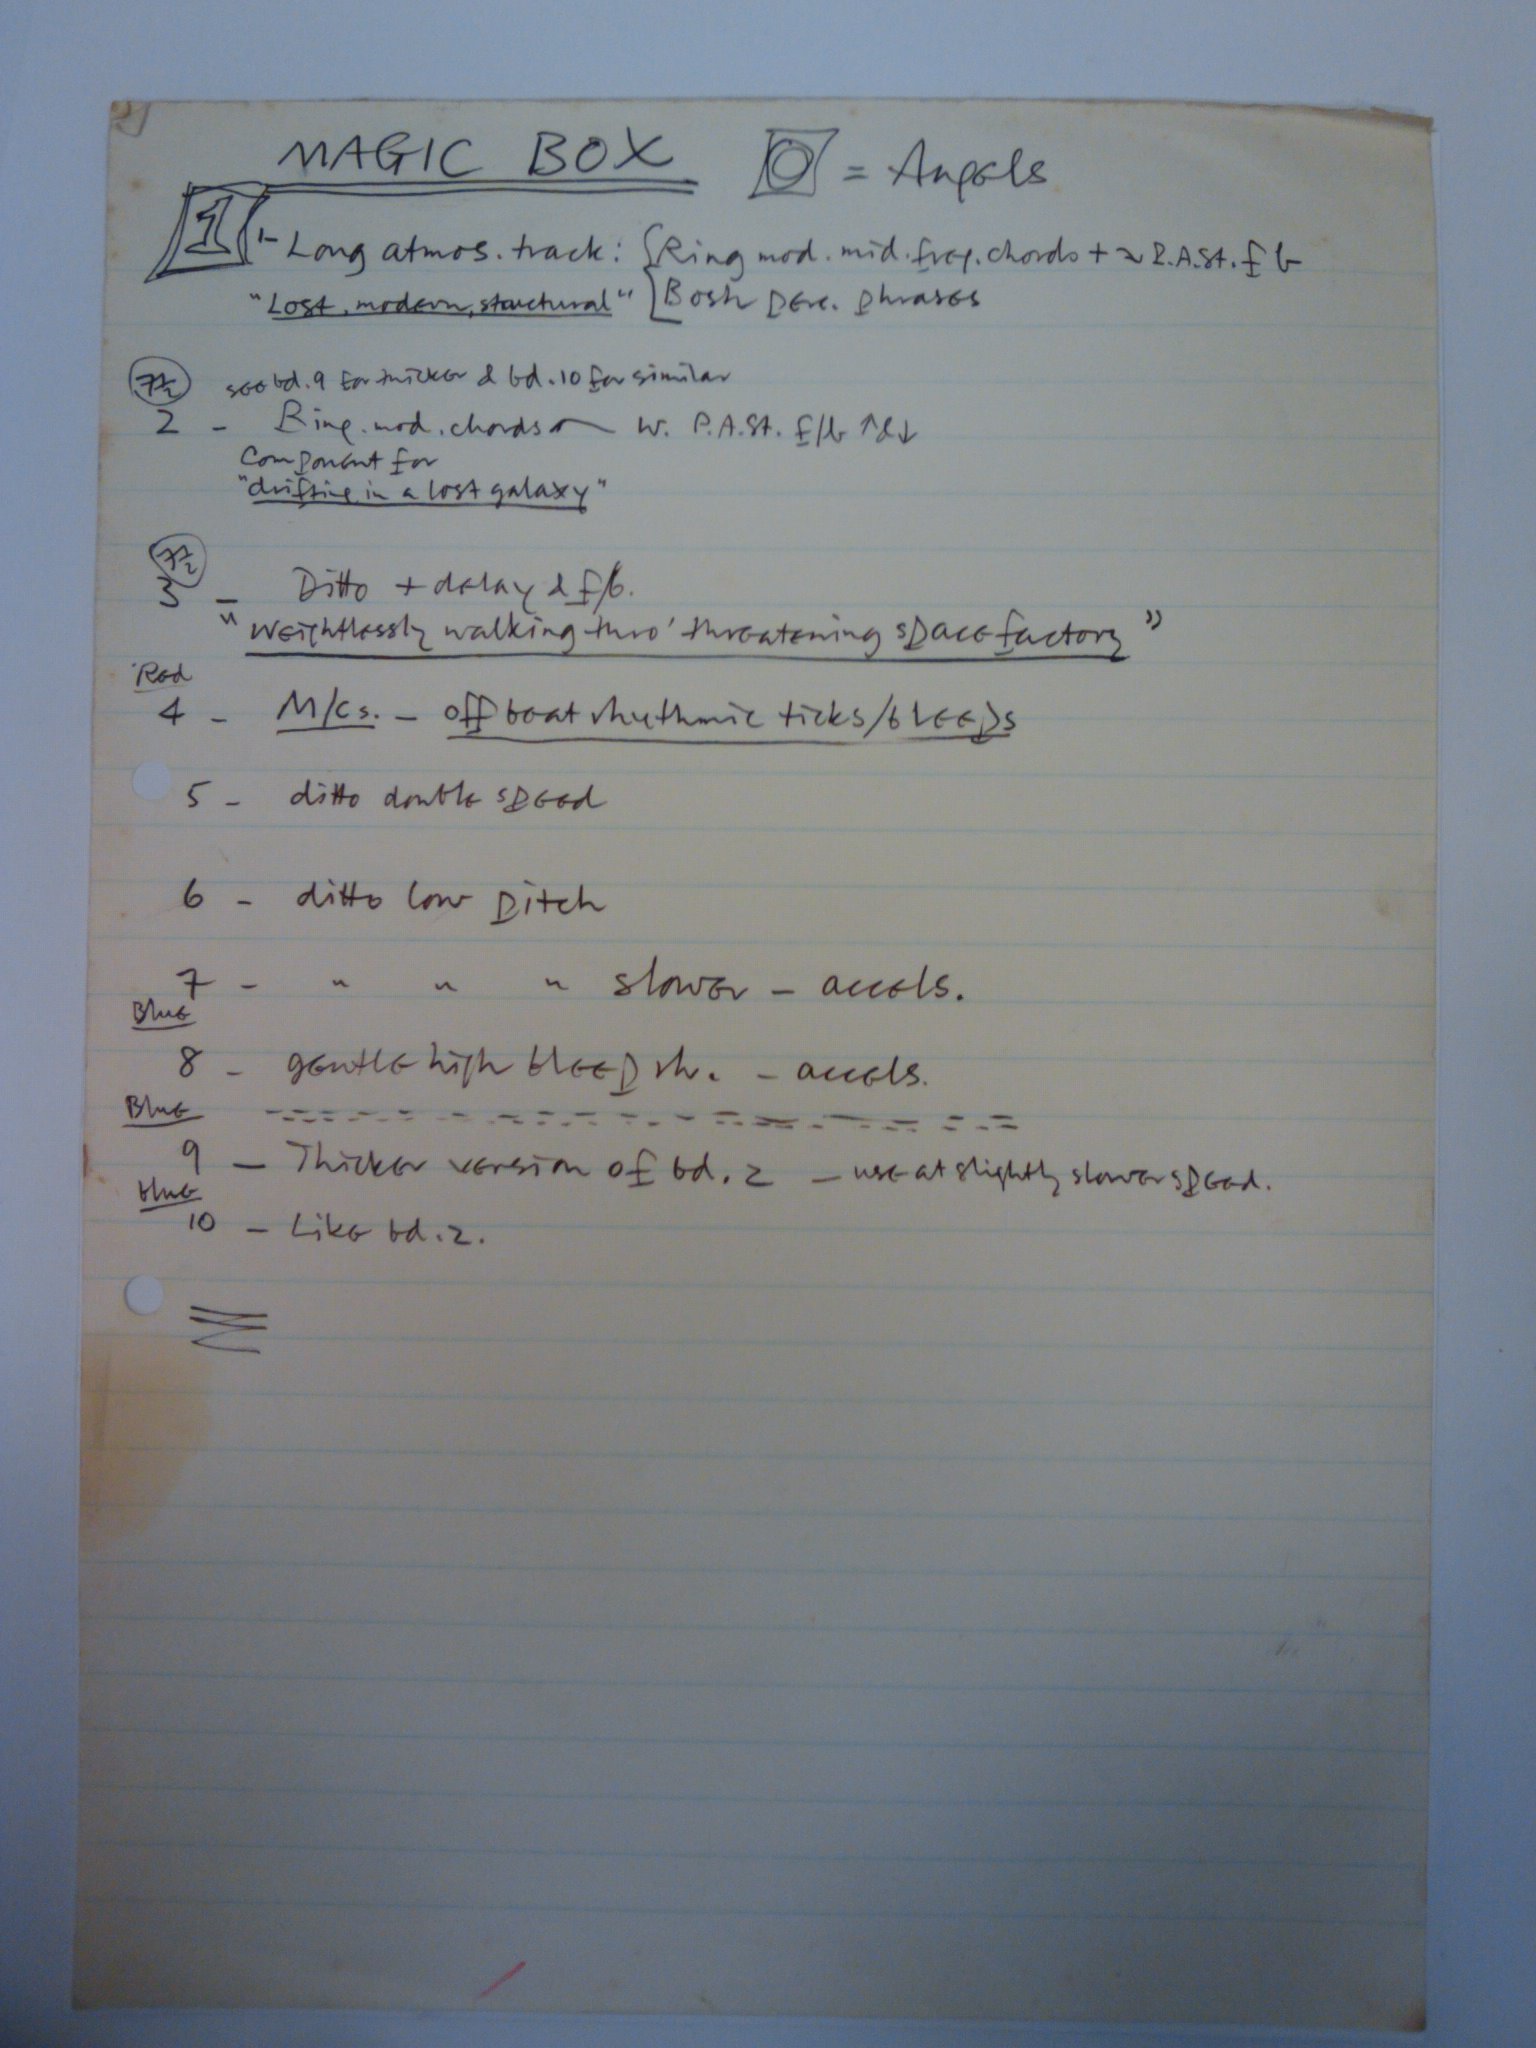 MAGIC BOX = Angels
1 1- Long atmos. track: { Ring mod. mid. freq. chords + ~ P.A.St. f b
"Lost, modern, structural" Bosh perc. phrases
7½ see bd. 9 for thicker & bd. 10 for similar
2 - Ring. mod. chords w. P.A.St. f/b ↑&↓
Component for
"drifting in a lost galaxy"
7½
3 - Ditto + delay & f/b.
"Weightlessly walking thro' threatening space factory"
Red
4 - M/cs. - off beat rhythmic ticks/bleeps
5 - ditto double speed
6 - ditto low pitch
7 - " " " slower - accels.
Blue
8 - gentle high bleep rh. - accels.
Blue
9 - Thicker version of bd. 2 - use at slightly slower speed.
blue
10 - Like bd. 2.